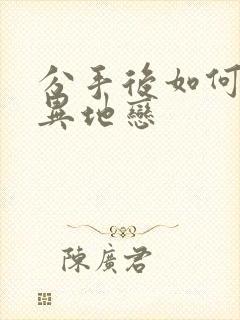 分手後如何
異地戀
陳廣君